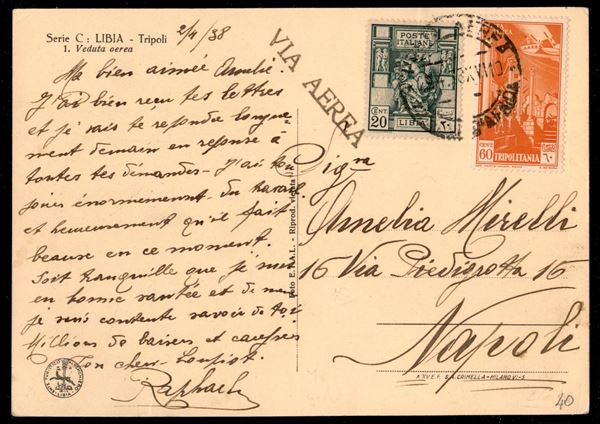 Serie C : LIBIA - Tripoli
1. Veduta aerea
2/4/38
VIA AEREA
POSTE ITALIANE
CENT 20
LIBIA
CENT 60
TRIPOLITANIA
Ma bien aimée Amelie.
J'ai bien reçu tes lettres
et je vais te repondre longue-
ment demain en reponse à
toutes tes demandes - J'ai tou
jours énormement du travail
et heureusement qu'il fait
beau en ce moment.
Soit tranquille que je suis
en bonne santée et de
je suis contente savoir de toi
Millions de baisers et caresses
Ton cher
Raphael
Foto E. T. A. L. - Riprod. vietata
Sig.na
Amelia Mirelli
16 Via Piedigrotta 16
Napoli
A. XV E.F. S.A. CRIMELLA - MILANO VI-5
40